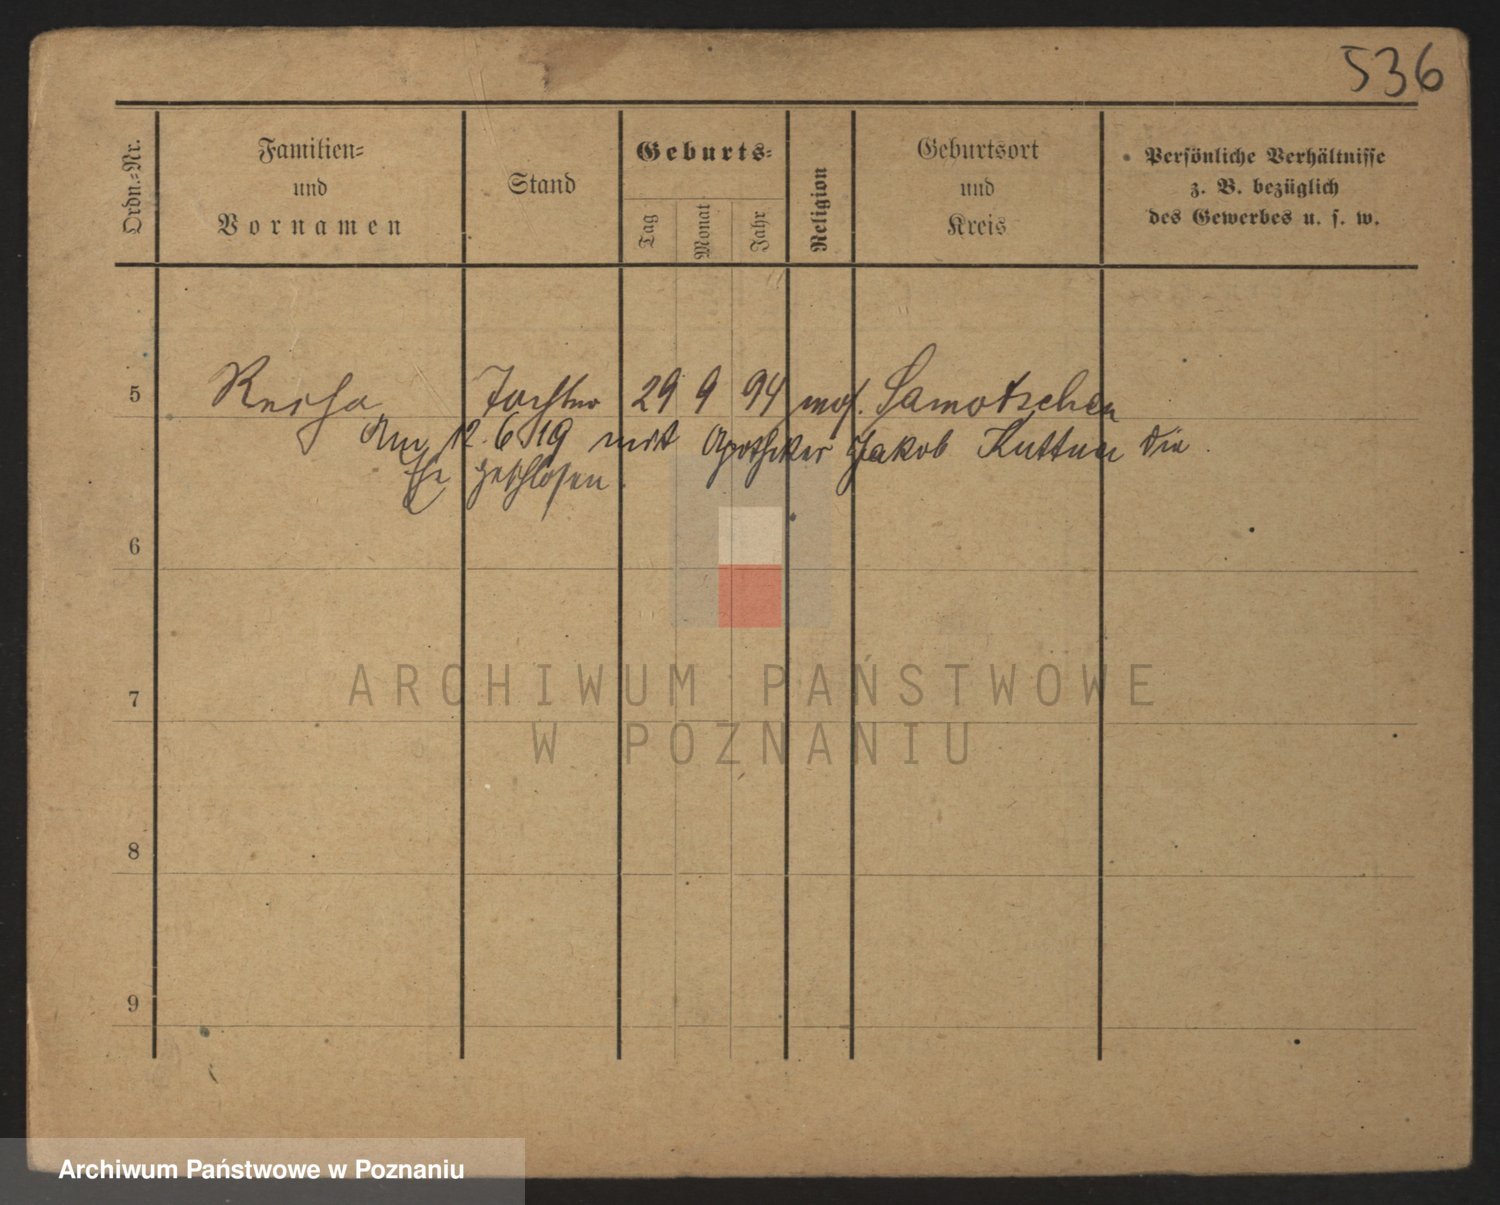 536
Ordn.-Nr.
Familien-
und
Vornamen
Stand
Geburts-
Tag
Monat
Jahr
Religion
Geburtsort
und
Kreis
Persönliche Verhältnisse
z. B. bezüglich
des Gewerbes u. s. w.
5 Tochter 29 9 94 mos. Samotschen
Am 12. 6. 19 mit Apotheker Jakob Kuttner die
Ehe geschlossen.
6
7
8
9
ARCHIWUM PAŃSTWOWE
W POZNANIU
Archiwum Państwowe w Poznaniu